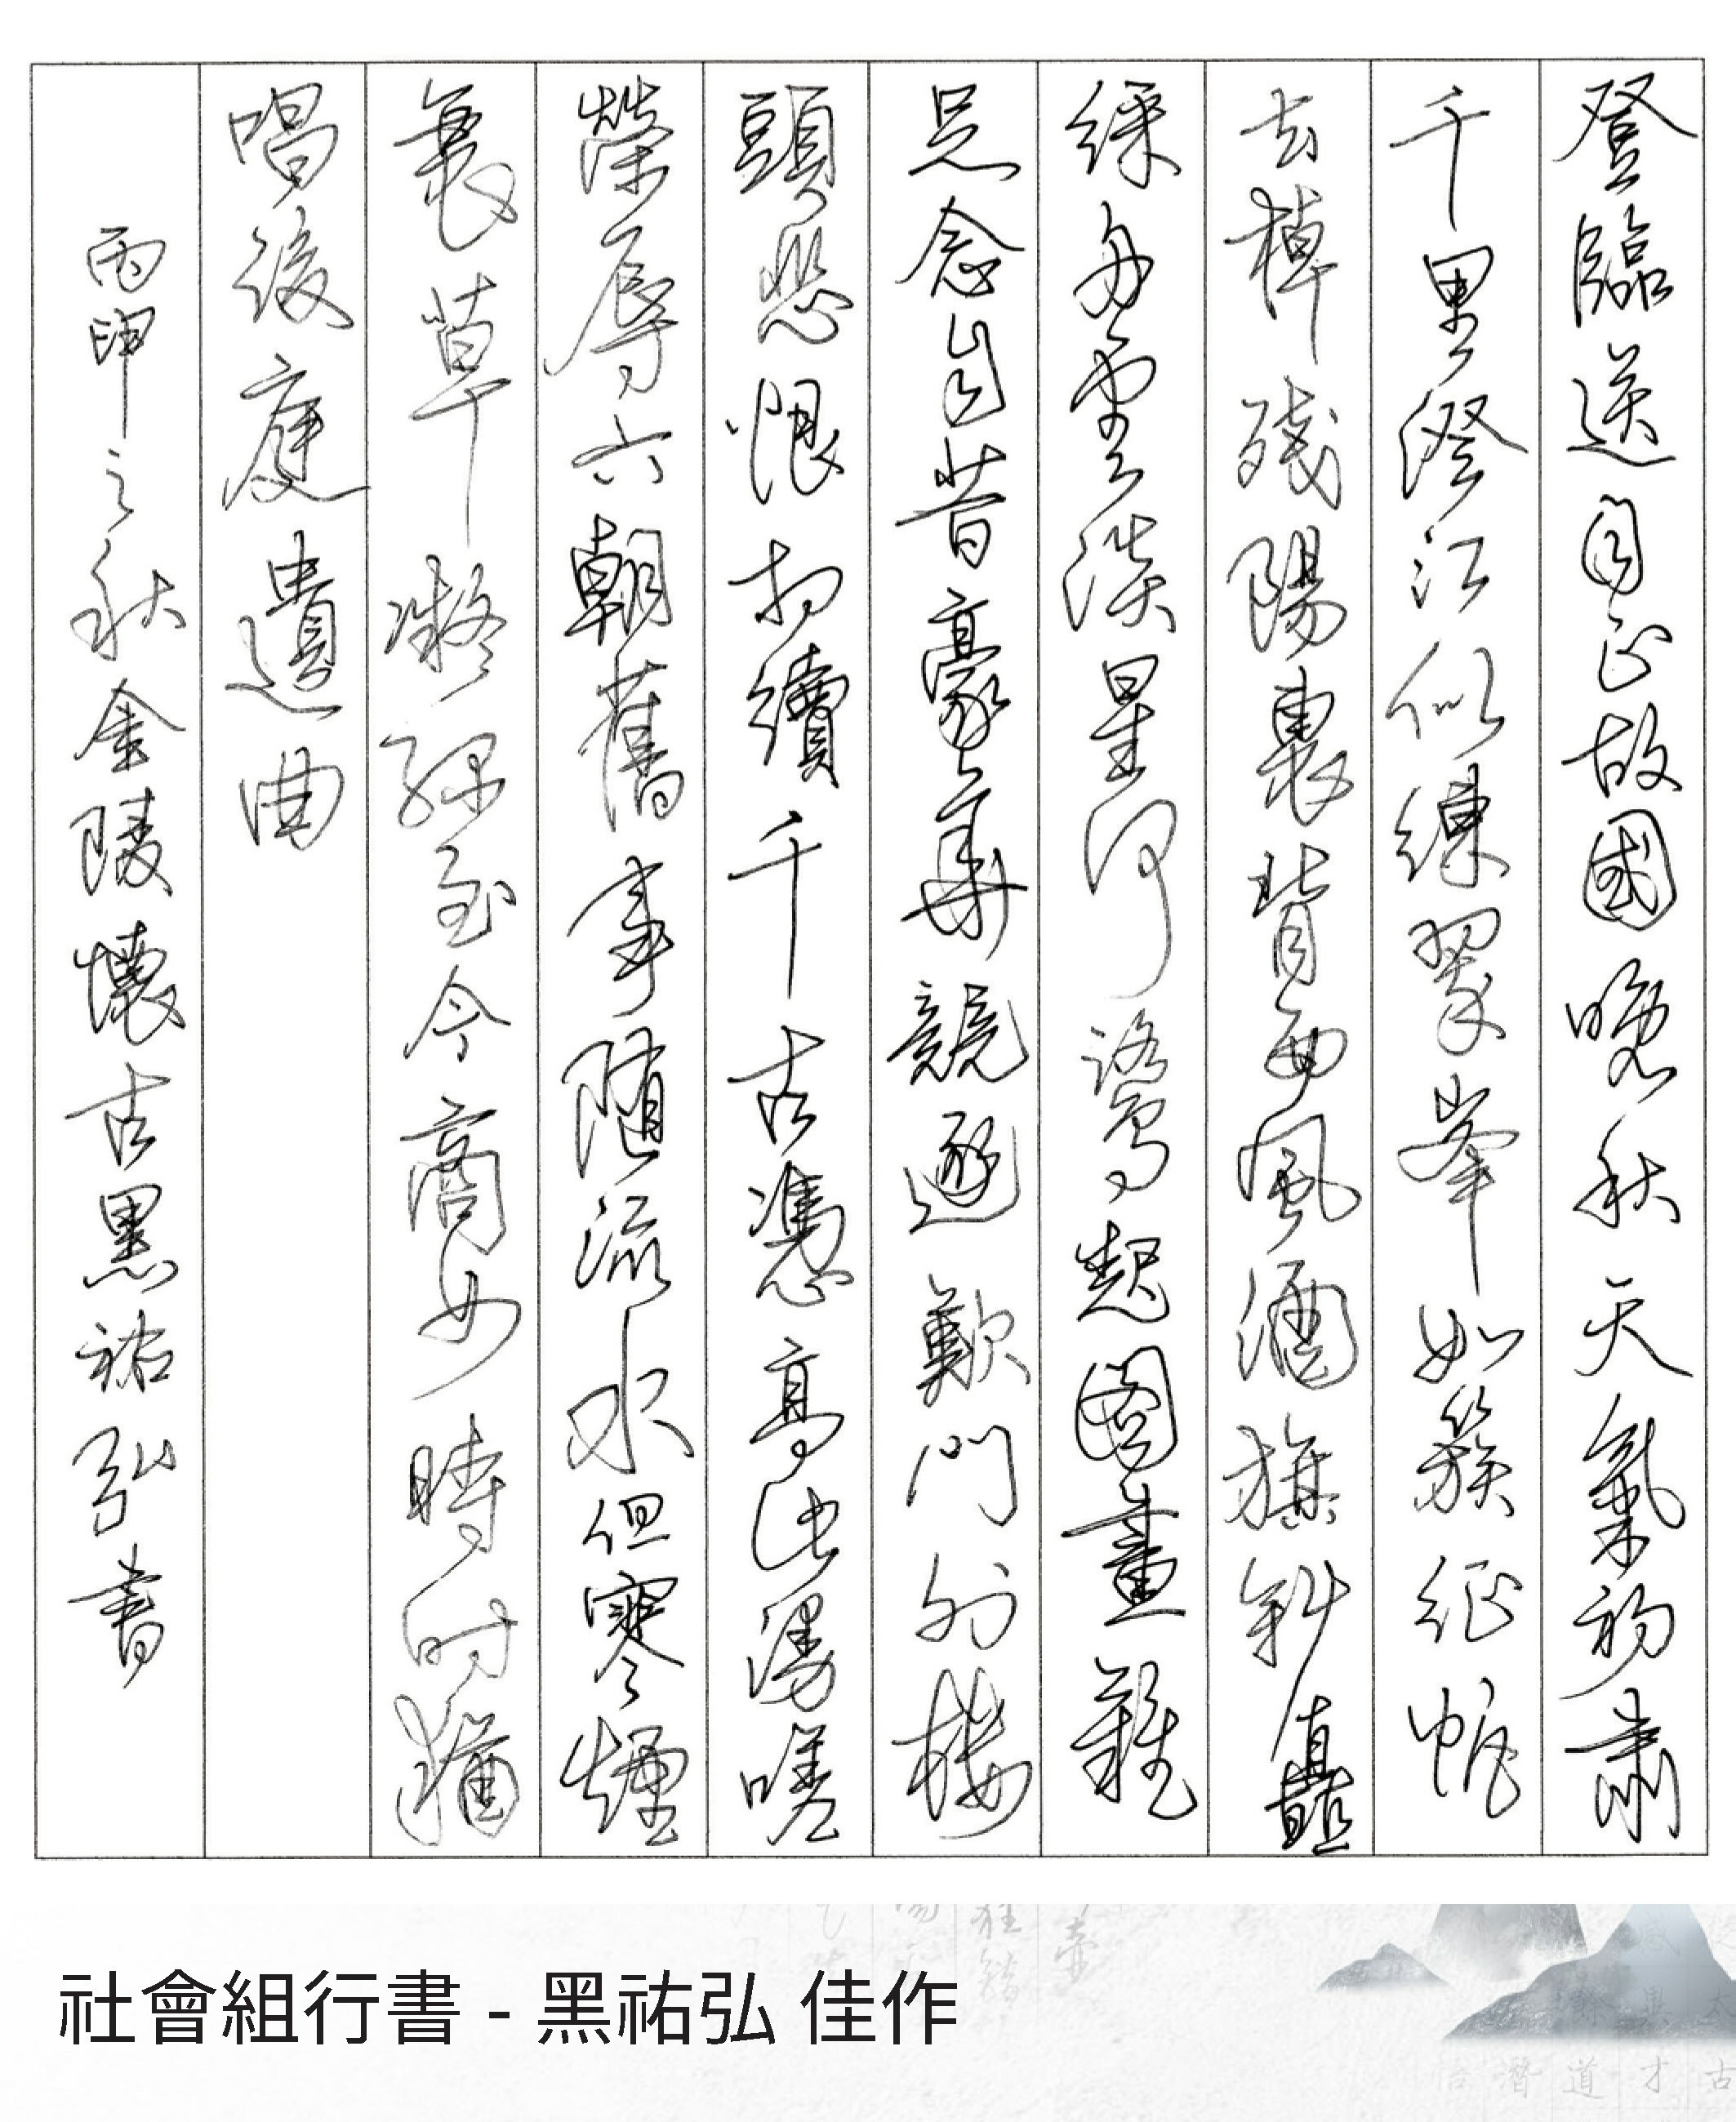 登臨送目正故國晚秋天氣初肅
千里澄江似練翠峯如簇征帆
去棹殘陽裏背西風酒旗斜矗
綵舟雲淡星河鷺起圖畫難
足念自昔豪華競逐歎門外樓
頭悲恨相續千古憑高此漫嗟
榮辱六朝舊事隨流水但寒煙
衰草凝綠至今商女時時猶
唱後庭遺曲
丙申之秋金陵懷古黑祐弘書
社會組行書 - 黑祐弘 佳作